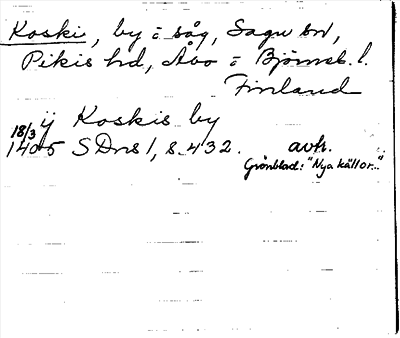 Koski, by i såg, Sagu sn,
Pikis hd, Åbo i Björneb. l.
Finland
ij Koskis by
18/3 1405 SDns 1, s. 432. avh.
Grönblad: "Nya källor..."